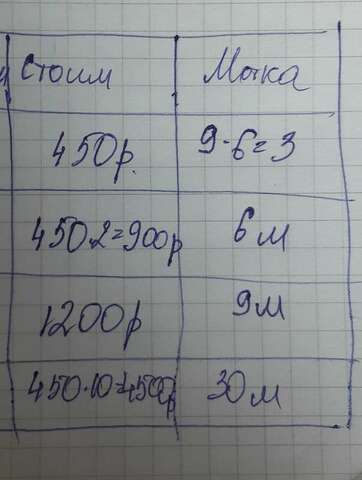 Стоим Мотка
450р. 9-6=3
450·2=900р 6м
1200р 9м
450·10=4500р 30м